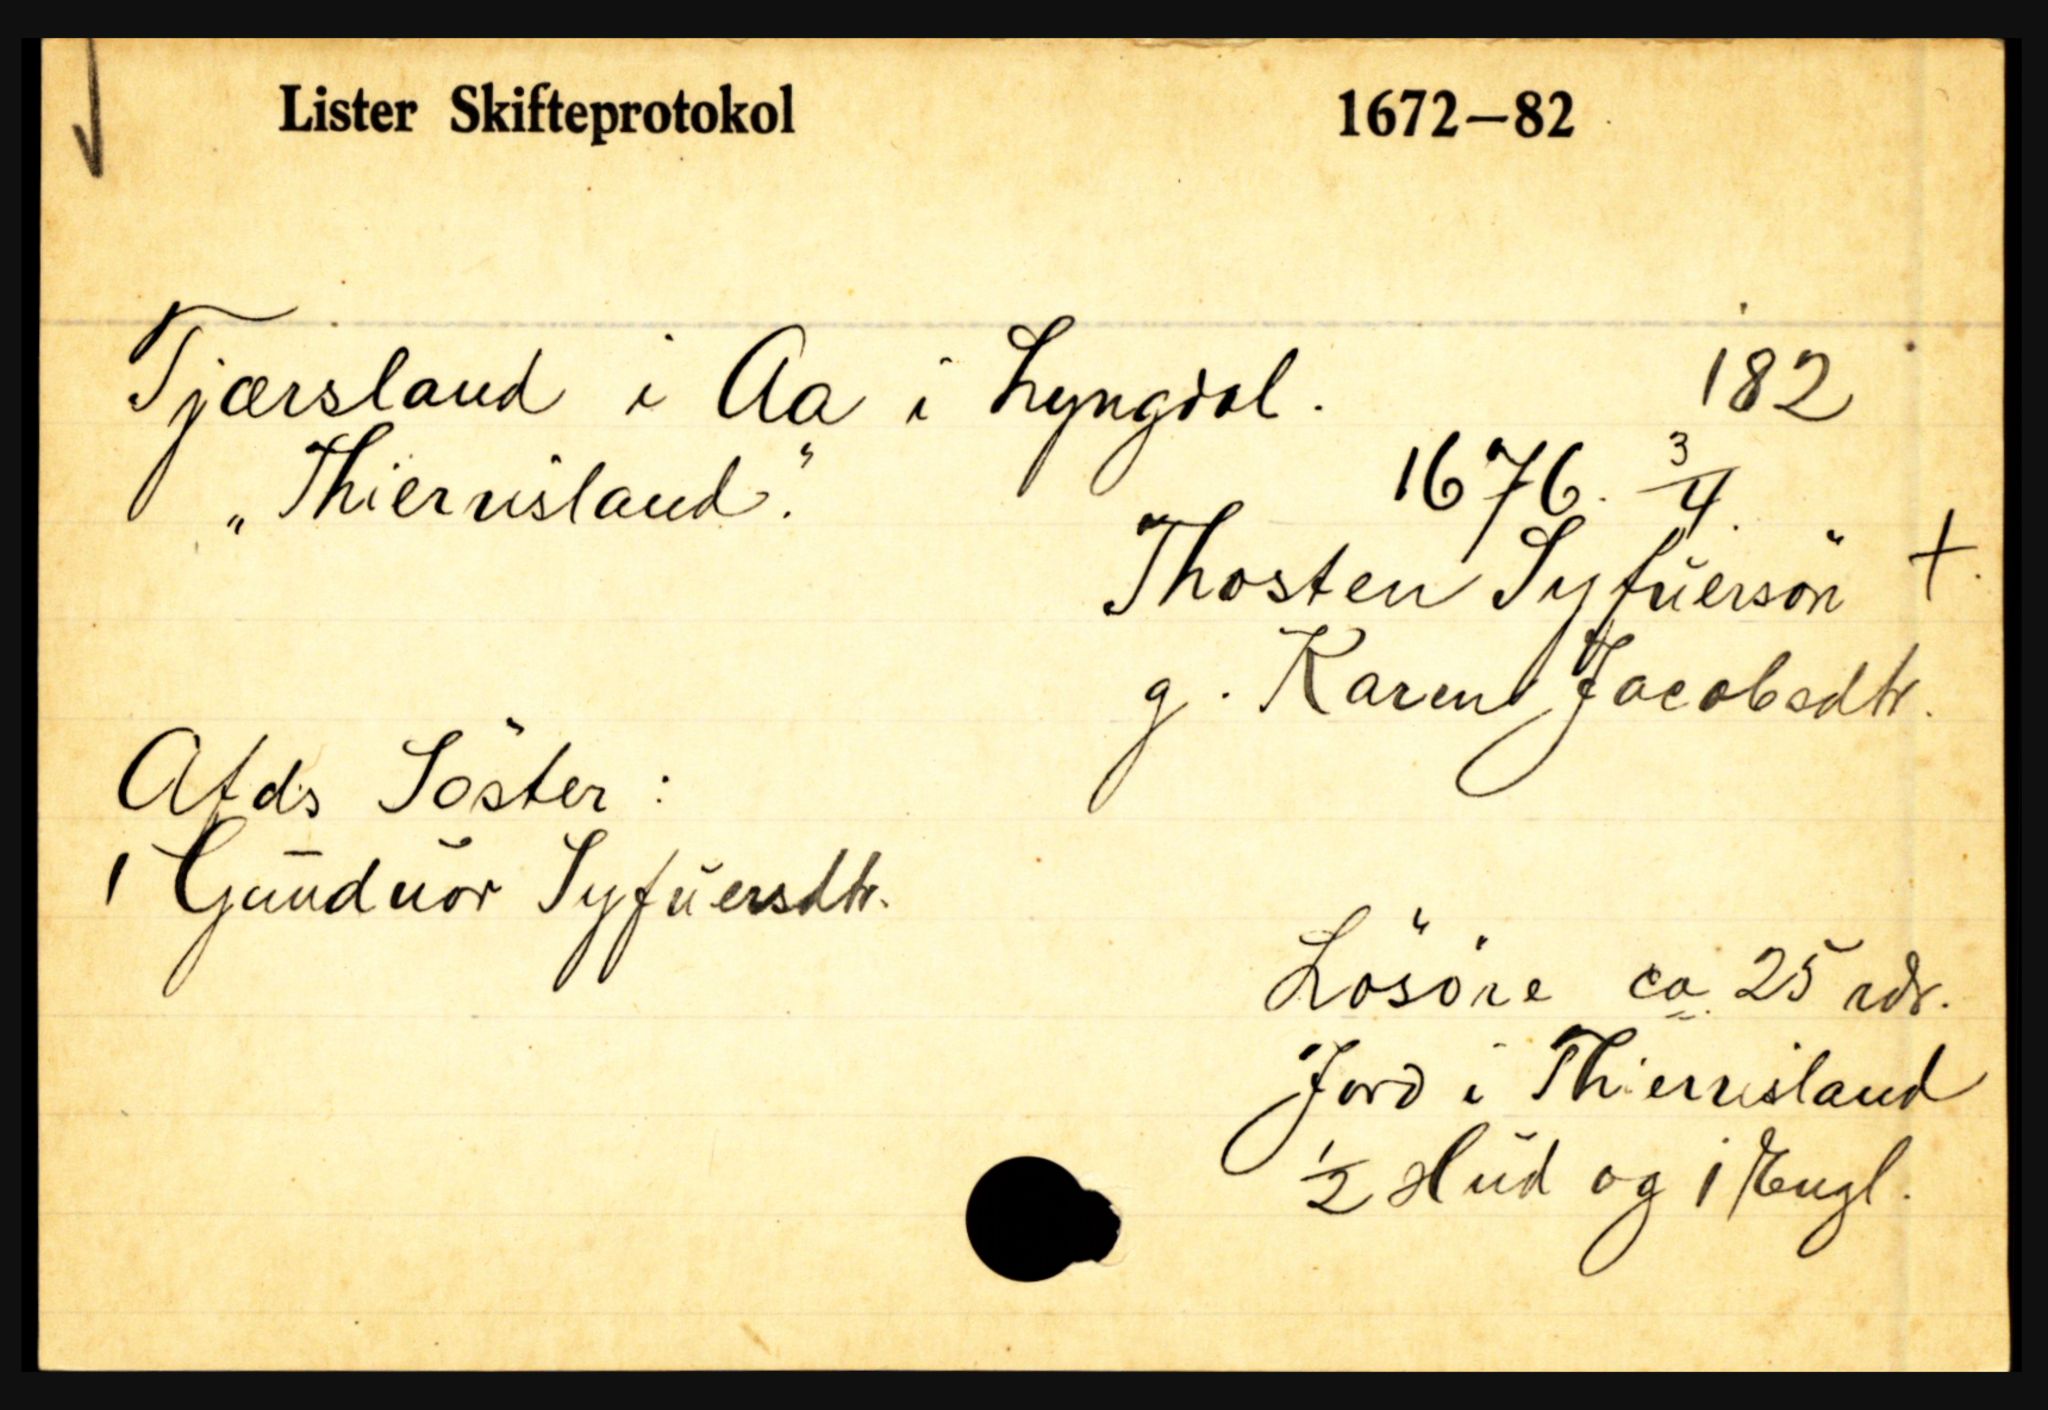 Lister Skifteprotokol 1672—82
Tjærsland i Aa i Lyngdal. 182
„Thierrisland." 1676. 3/4.
Thosten Syfŭersön +.
g. Karen Jacobsdtr.
Afds Söster:
1 Gunduor Syfŭersdtr.
Lösöre ca. 25 rdr.
Jord i Thierrisland
1/2 Hŭd og 1 Engl.